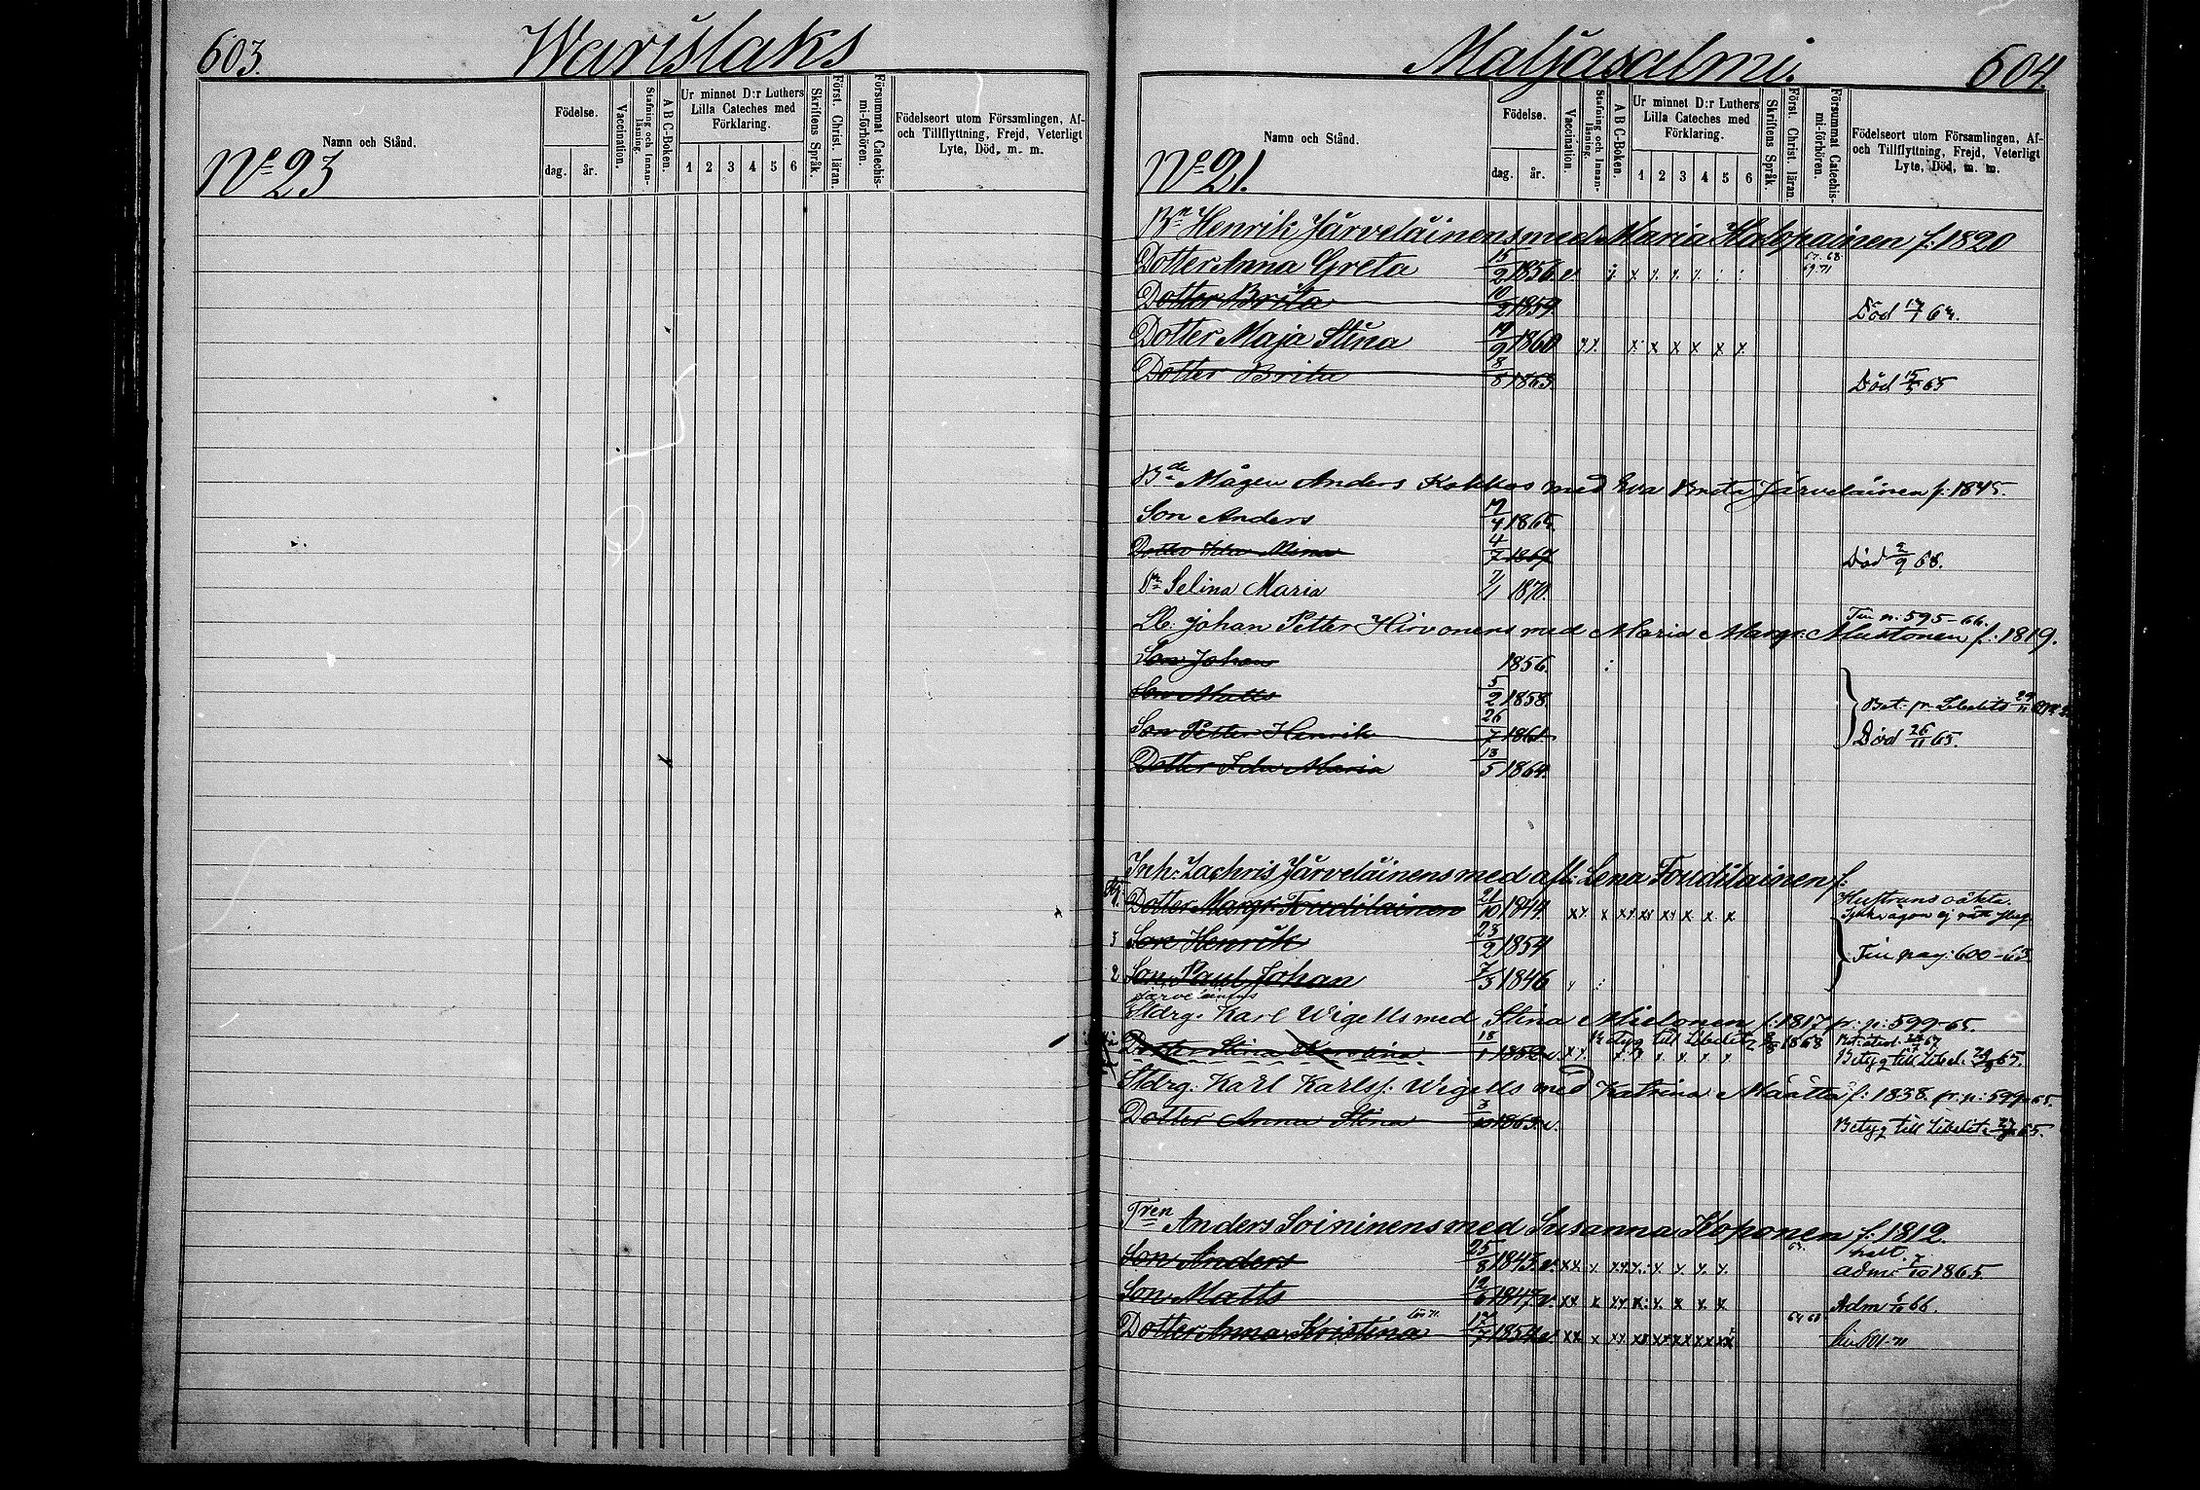 603.
Warislaks
Namn och Stånd.
Födelse.
dag.
år.
Vaccination.
Stafning och Innan-
läsning.
A B C-Boken.
Ur minnet D:r Luthers
Lilla Cateches med
Förklaring.
1 2 3 4 5 6
Skriftens Språk.
Först. Christ. läran.
Försummat Catechis-
mi-förhören.
Födelseort utom Församlingen, Af-
och Tillflyttning, Frejd, Veterligt
Lyte, Död, m. m.
No 23
Maljasalmi.
604.
Namn och Stånd.
Födelse.
dag.
år.
Vaccination.
Stafning och Innan-
läsning.
A B C-Boken.
Ur minnet D:r Luthers
Lilla Cateches med
Förklaring.
1 2 3 4 5 6
Skriftens Språk.
Först. Christ. läran.
Försummat Catechis-
mi-förhören.
Födelseort utom Församlingen, Af-
och Tillflyttning, Frejd, Veterligt
Lyte, Död, m. m.
No 21.
Henrik Järveläinens med Maria Halopainen f: 1820
Dotter Anna Greta 15/2 1856 v. 67. 68 69. 71
Dotter Brita 10/2 1859 Död
Dotter Maja Stina 19/9 1860
Dotter Brita 8/8 1863 Död 15/5 65
Bde Mågen Anders Kokkos med Eva Brita Järveläinen f: 1845.
Son Anders
Dotter Ida Mina 4/7 1867 Död 2/9 68.
Selina Maria 7/1 1870.
Johan Petter Hirvonens med Maria Margr: Mustonen f: 1819. p: 595-66.
Son Johan 1856.
Son Matts 5/2 1858
Son Petter Henrik 26/7 1861 Död 26/11 65.
Dotter Ida Maria 13/5 1864.
Inh: Zachris Järveläinens med afl: Lena Toudilainen f:
Dotter Margr: Toudilainen 21/10 1844 Hustruns oäkta.
3 Son Henrik 23/2 1854 pag: 600-63
2 Son Paul Johan 7/3 1846
Järveläinens
Stdrg. Karl Wigells med Stina Mietonen f: 1817 fr: p: 599-65.
Dotter Stina Karolina 18/1 1852 v. Betyg till Libelits 1868
Betyg till Libel.
Stdrg: Karl Karlss: Wigells med Katrina Määttä f: 1838. fr: p: 599-65.
Dotter Anna Stina 3/10 1863 v. Betyg till Libelits 65.
Anders Soininens med Susanna Koponen f: 1812.
Son Anders 25/8 1843 v. halt. Adm: 1865
Son Matts 12/6 1847 v. Adm 66.
Dotter Anna Kristina 12/7 1854 v.